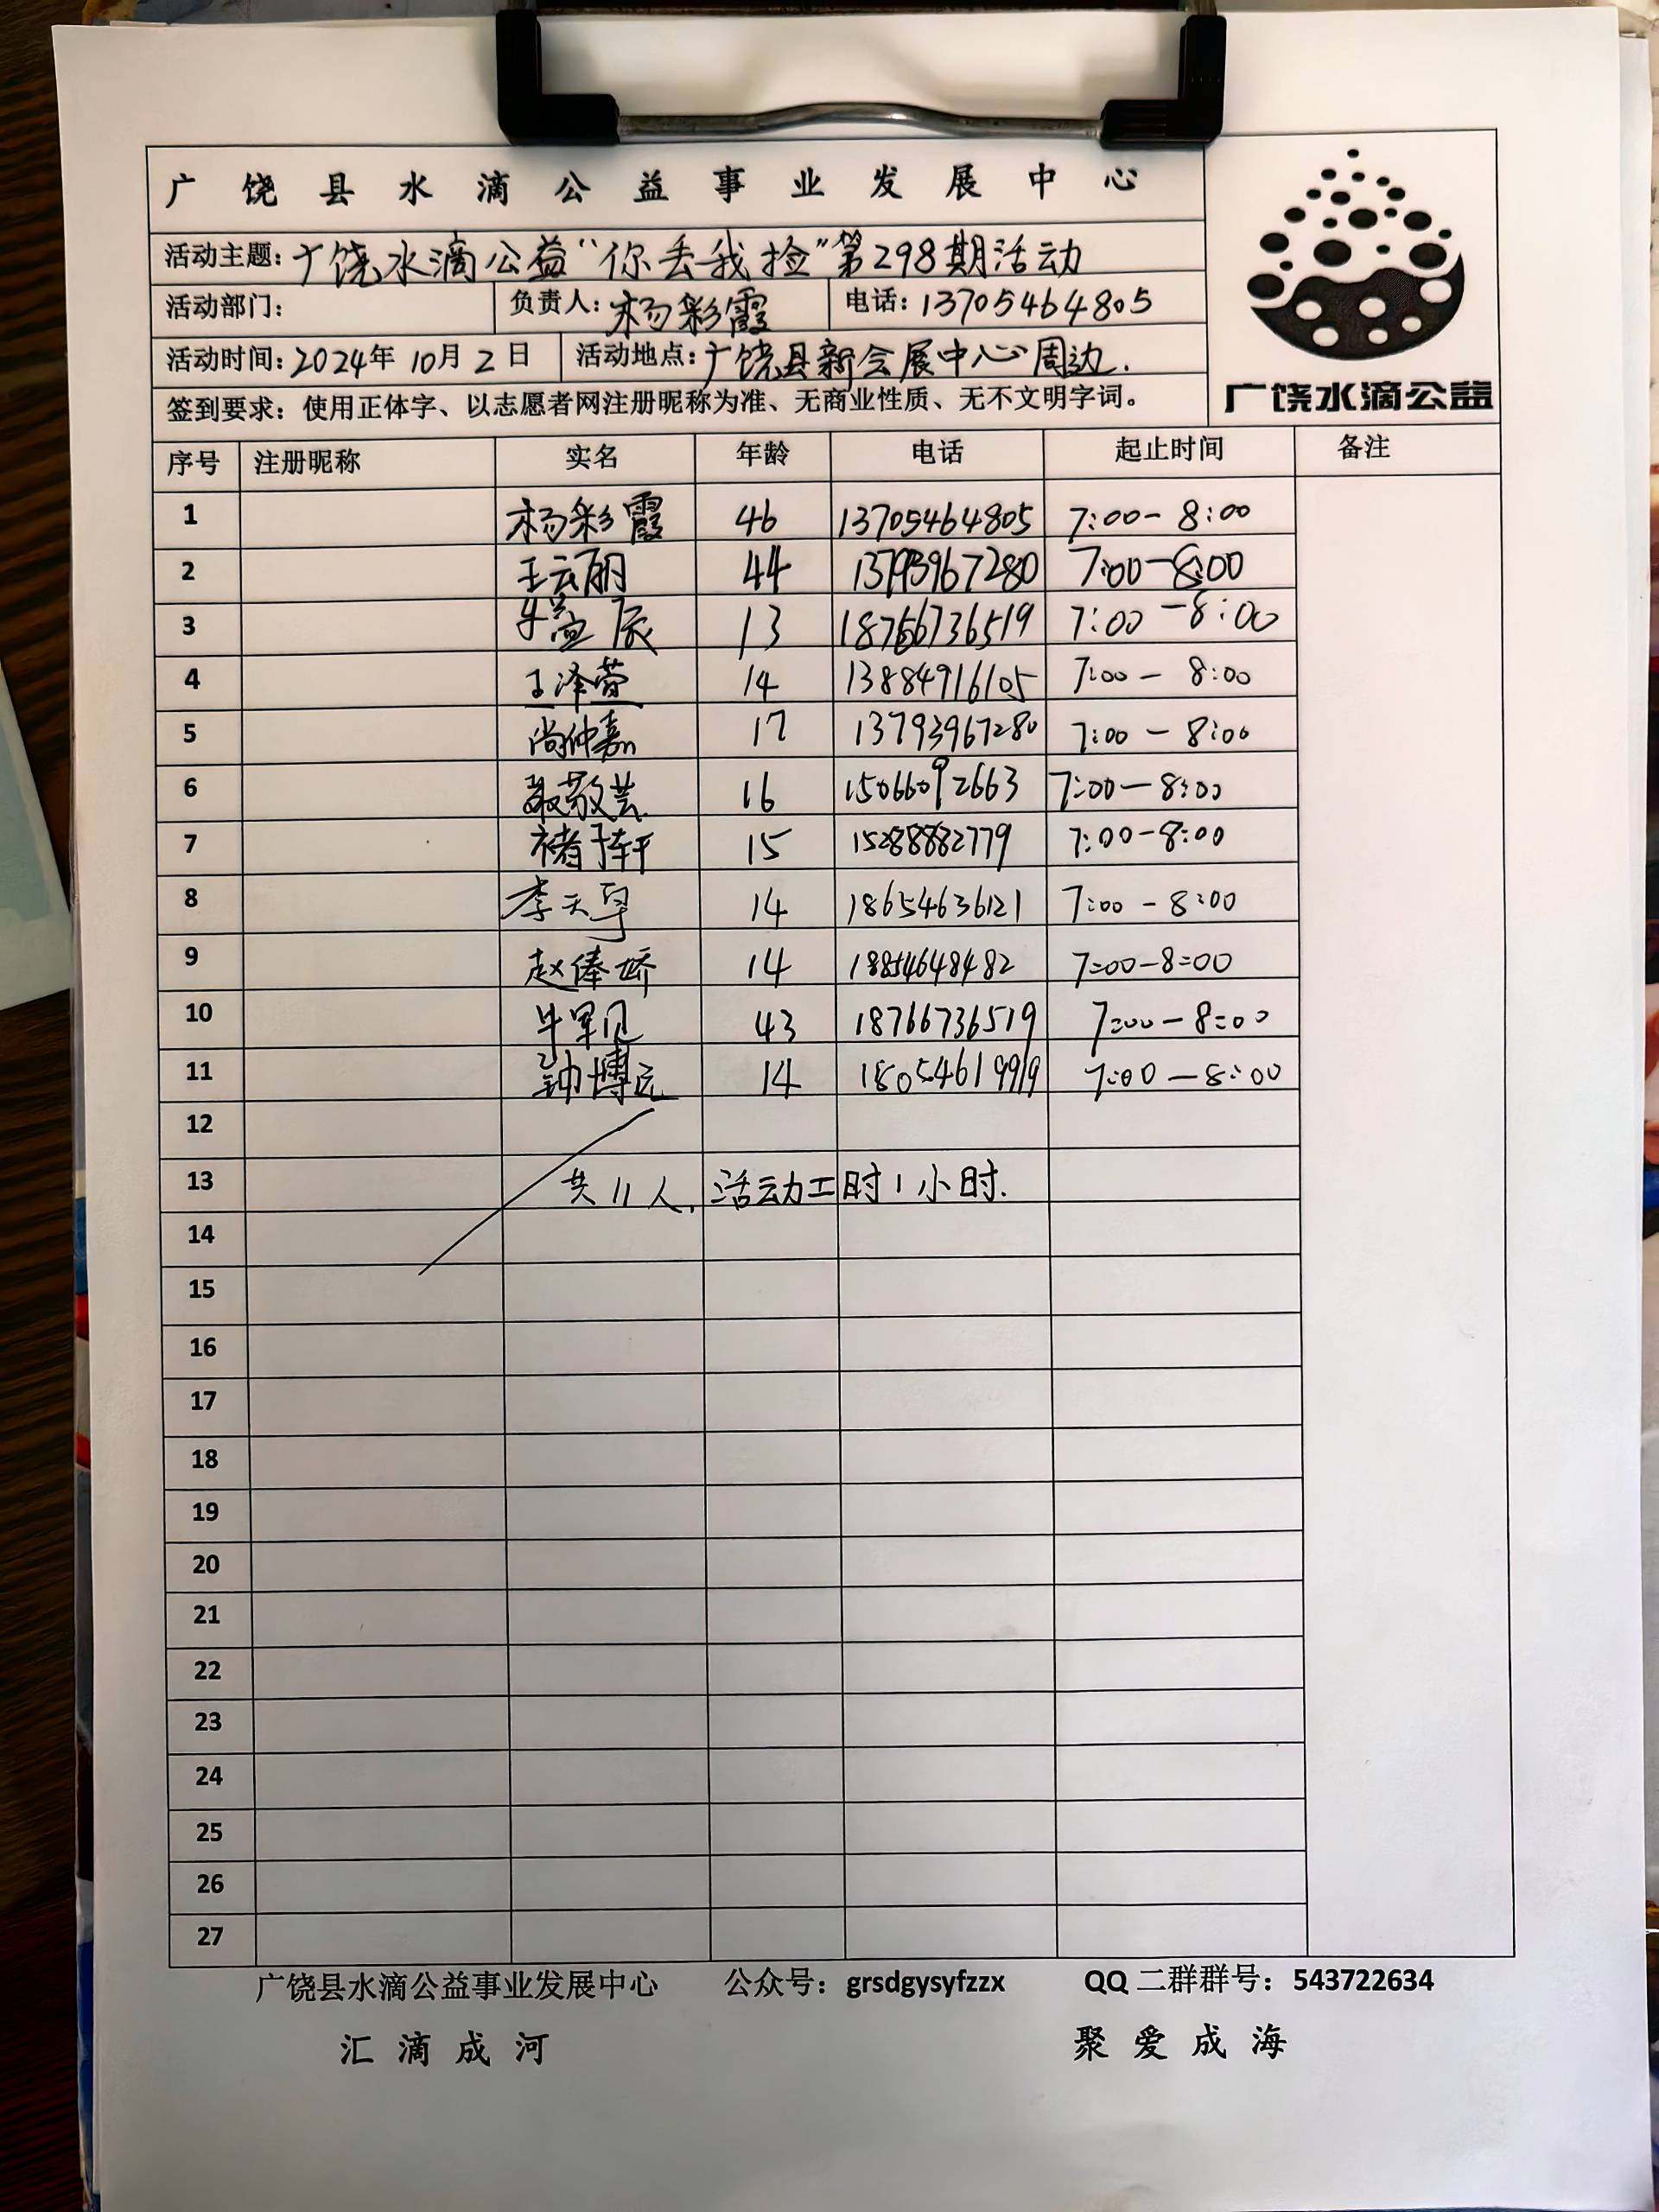 广饶县水滴公益事业发展中心
活动主题：广饶水滴公益“你丢我捡”第298期活动
活动部门： 负责人：杨彩霞 电话：13705464805
活动时间：2024年10月2日 活动地点：广饶县新会展中心周边.
签到要求：使用正体字、以志愿者网注册昵称为准、无商业性质、无不文明字词。
广饶水滴公益
序号 注册昵称 实名 年龄 电话 起止时间 备注
1 杨彩霞 46 13705464805 7:00-8:00
2 王云丽 44 13793967280 7:00-8:00
3 牛益辰 13 18766736519 7:00-8:00
4 王泽蓉 14 13884916105 7:00-8:00
5 尚仲嘉 17 13793967280 7:00-8:00
6 敬芸 16 15066092663 7:00-8:00
7 褚子轩 15 15288882779 7:00-8:00
8 李天 14 18654636121 7:00-8:00
9 赵俸娇 14 18854648482 7:00-8:00
10 牛军 43 18766736519 7:00-8:00
11 钟博远 14 18054619919 7:00-8:00
12
13 共11人，活动工时1小时.
14
15
16
17
18
19
20
21
22
23
24
25
26
27
广饶县水滴公益事业发展中心 公众号：grsdgysyfzzx QQ二群群号：543722634
汇滴成河 聚爱成海